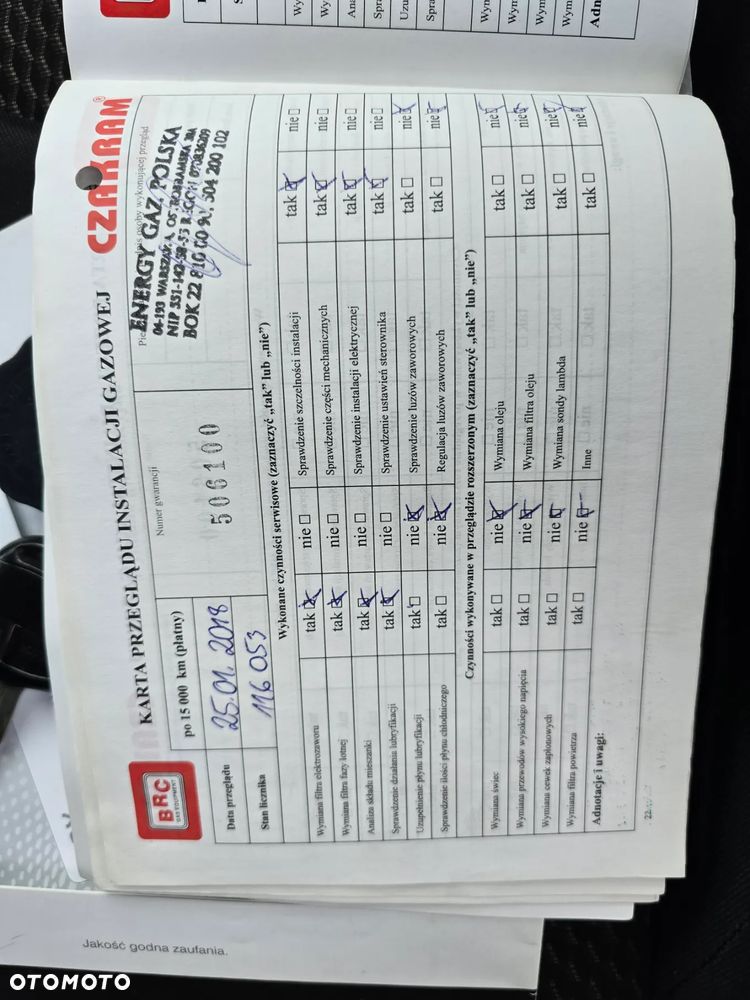 BRC
GAS EQUIPMENT
KARTA PRZEGLĄDU INSTALACJI GAZOWEJ
CZAKRAM®
po 15 000 km (płatny)
Numer gwarancji
osoby wykonującej przegląd
Data przeglądu
25.01.2018
506100
ENERGY GAZ POLSKA
04-193 WARSZAWA,
NIP 551-142-
BOK 22 810 00 504 200 102
Stan licznika
116 053
Wykonane czynności serwisowe (zaznaczyć „tak” lub „nie”)
Wymiana filtra elektrozaworu tak ☒ nie ☐ Sprawdzenie szczelności instalacji tak ☒ nie ☐
Wymiana filtra fazy lotnej tak ☒ nie ☐ Sprawdzenie części mechanicznych tak ☒ nie ☐
Analiza składu mieszanki tak ☒ nie ☐ Sprawdzenie instalacji elektrycznej tak ☒ nie ☐
Sprawdzenie działania lubryfikacji tak ☒ nie ☐ Sprawdzenie ustawień sterownika tak ☒ nie ☐
Uzupełnienie płynu lubryfikacji tak ☐ nie ☒ Sprawdzenie luzów zaworowych tak ☐ nie ☒
Sprawdzenie ilości płynu chłodniczego tak ☐ nie ☒ Regulacja luzów zaworowych tak ☐ nie ☒
Czynności wykonywane w przeglądzie rozszerzonym (zaznaczyć „tak” lub „nie”)
Wymiana świec tak ☐ nie ☒ Wymiana oleju tak ☐ nie ☒
Wymiana przewodów wysokiego napięcia tak ☐ nie ☒ Wymiana filtra oleju tak ☐ nie ☒
Wymiana cewek zapłonowych tak ☐ nie ☒ Wymiana sondy lambda tak ☐ nie ☒
Wymiana filtra powietrza tak ☐ nie ☒ Inne tak ☐ nie ☒
Adnotacje i uwagi:
22
BRC
Jakość godna zaufania.
OTOMOTO